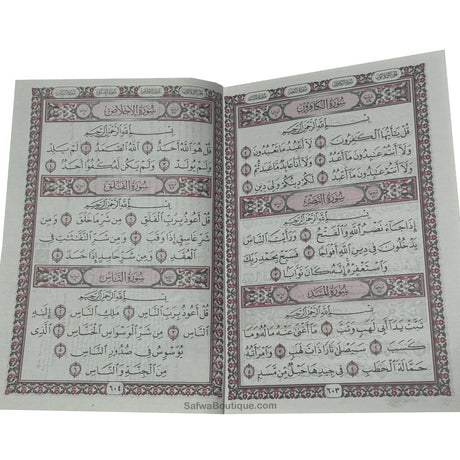 سُورَةُ الْكَافِرُونَ
بِسْمِ اللَّهِ الرَّحْمَٰنِ الرَّحِيمِ
قُلْ يَٰٓأَيُّهَا الْكَٰفِرُونَ ١ لَآ أَعْبُدُ مَا تَعْبُدُونَ ٢
وَلَآ أَنتُمْ عَٰبِدُونَ مَآ أَعْبُدُ ٣ وَلَآ أَنَا۠ عَابِدٌ مَّا عَبَدتُّمْ ٤
وَلَآ أَنتُمْ عَٰبِدُونَ مَآ أَعْبُدُ ٥ لَكُمْ دِينُكُمْ وَلِىَ دِينِ ٦
سُورَةُ النَّصْرِ
بِسْمِ اللَّهِ الرَّحْمَٰنِ الرَّحِيمِ
إِذَا جَآءَ نَصْرُ اللَّهِ وَالْفَتْحُ ١ وَرَأَيْتَ النَّاسَ
يَدْخُلُونَ فِى دِينِ اللَّهِ أَفْوَاجًا ٢ فَسَبِّحْ بِحَمْدِ رَبِّكَ
وَاسْتَغْفِرْهُ إِنَّهُۥ كَانَ تَوَّابًۢا ٣
سُورَةُ الْمَسَدِ
بِسْمِ اللَّهِ الرَّحْمَٰنِ الرَّحِيمِ
تَبَّتْ يَدَآ أَبِى لَهَبٍ وَتَبَّ ١ مَآ أَغْنَىٰ عَنْهُ مَالُهُۥ وَمَا
كَسَبَ ٢ سَيَصْلَىٰ نَارًا ذَاتَ لَهَبٍ ٣ وَامْرَأَتُهُۥ
حَمَّالَةَ الْحَطَبِ ٤ فِى جِيدِهَا حَبْلٌ مِّن مَّسَدٍۭ ٥
٦٠٣
سُورَةُ الْإِخْلَاصِ
بِسْمِ اللَّهِ الرَّحْمَٰنِ الرَّحِيمِ
قُلْ هُوَ اللَّهُ أَحَدٌ ١ اللَّهُ الصَّمَدُ ٢ لَمْ يَلِدْ
وَلَمْ يُولَدْ ٣ وَلَمْ يَكُن لَّهُۥ كُفُوًا أَحَدٌۢ ٤
سُورَةُ الْفَلَقِ
بِسْمِ اللَّهِ الرَّحْمَٰنِ الرَّحِيمِ
قُلْ أَعُوذُ بِرَبِّ الْفَلَقِ ١ مِن شَرِّ مَا خَلَقَ ٢ وَمِن
شَرِّ غَاسِقٍ إِذَا وَقَبَ ٣ وَمِن شَرِّ النَّفَّٰثَٰتِ فِى
الْعُقَدِ ٤ وَمِن شَرِّ حَاسِدٍ إِذَا حَسَدَ ٥
سُورَةُ النَّاسِ
بِسْمِ اللَّهِ الرَّحْمَٰنِ الرَّحِيمِ
قُلْ أَعُوذُ بِرَبِّ النَّاسِ ١ مَلِكِ النَّاسِ ٢ إِلَٰهِ
النَّاسِ ٣ مِن شَرِّ الْوَسْوَاسِ الْخَنَّاسِ ٤ الَّذِى
يُوَسْوِسُ فِى صُدُورِ النَّاسِ ٥
مِنَ الْجِنَّةِ وَالنَّاسِ ٦
٦٠٤
SafwaBoutique.com